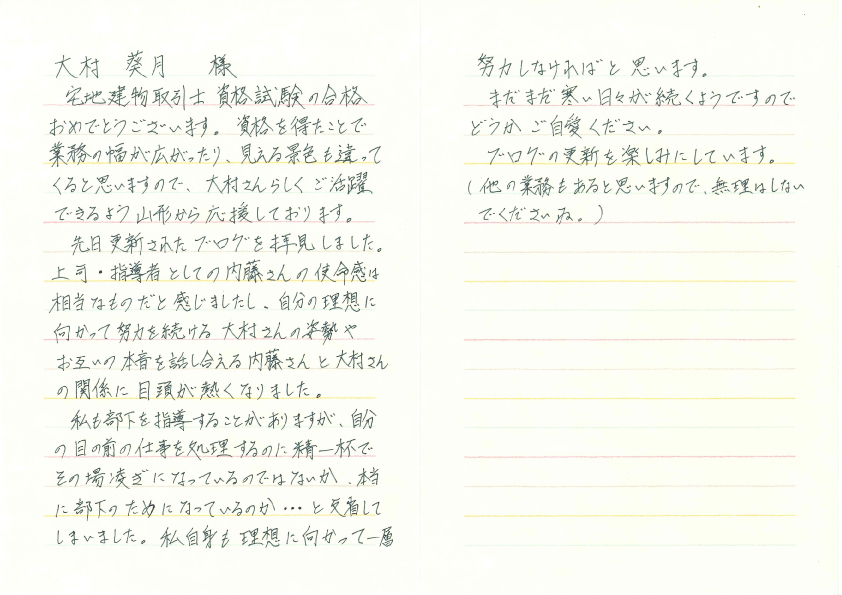 大村 葵月 様
宅地建物取引士 資格試験の合格
おめでとうございます。資格を得たことで
業務の幅が広がったり、見える景色も違って
くると思いますので、大村さんらしくご活躍
できるよう山形から応援しております。
先日更新されたブログを拝見しました。
上司・指導者としての内藤さんの使命感は
相当なものだと感じましたし、自分の理想に
向かって努力を続ける大村さんの姿勢や
お互いの本音を話し合える内藤さんと大村さん
の関係に目頭が熱くなりました。
私も部下を指導することがありますが、自分
の目の前の仕事を処理するのに精一杯で
その場凌ぎになっているのではないか、本当
に部下のためになっているのか・・・と反省して
しまいました。私自身も理想に向かって一層
努力しなければと思います。
まだまだ寒い日々が続くようですので
どうかご自愛ください。
ブログの更新を楽しみにしています。
(他の業務もあると思いますので、無理はしない
でくださいね。)